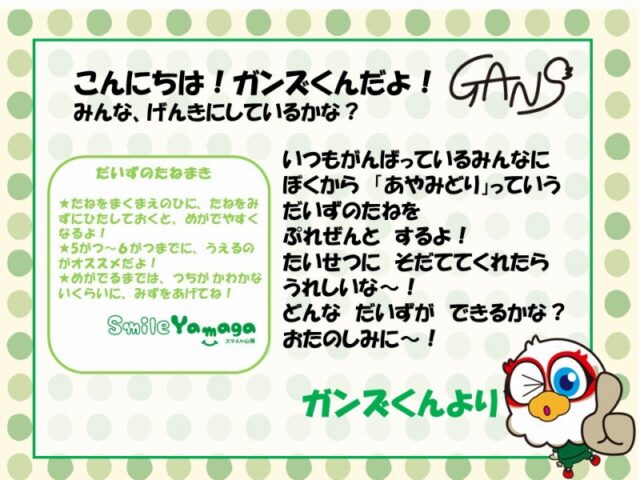 こんにちは！ガンズくんだよ！
GANS
みんな、げんきにしているかな？
だいずのたねまき
★たねをまくまえのひに、たねをみ
ずにひたしておくと、めがでやすく
なるよ！
★5がつ～６がつまでに、うえるの
がオススメだよ！
★めがでるまでは、つちが かわかな
いくらいに、みずをあげてね！
Smile Yamaga
スマイル山鹿
いつもがんばっているみんなに
ぼくから 「あやみどり」っていう
だいずのたねを
ぷれぜんと するよ！
たいせつに そだててくれたら
うれしいな～！
どんな だいずが できるかな？
おたのしみに～！
ガンズくんより